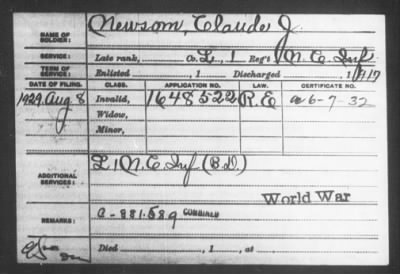 NAME OF SOLDIER: Newsom, Claude J.
SERVICE: Late rank, Co. L, 1 Reg't N.C. Inf
TERM OF SERVICE: Enlisted , 1 Discharged , 1917
DATE OF FILING. CLASS. APPLICATION NO. LAW. CERTIFICATE NO.
1929, Aug 8 Invalid, 1648522 R.E 6-7-32
Widow,
Minor,
ADDITIONAL SERVICES: L 1 N.C. Inf (B.D.)
World War
REMARKS: C-881.589 COMBINED
Died , 1 , at